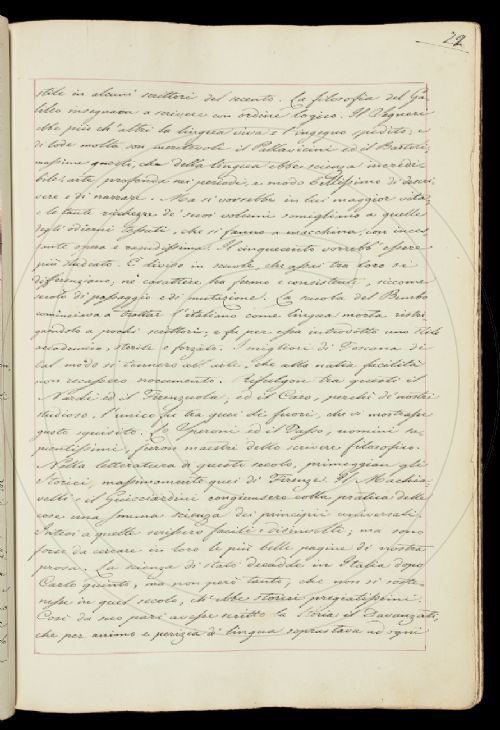 22
stile in alcuni scrittori del secento. La filosofia del Ga-
lileo insegnava a scrivere con ordine logico. Il Segneri
ebbe più ch'altri la lingua viva e l'ingegno spedito; e
di lode molta son meritevoli il Pallavicini ed il Bartoli,
massime questi, che della lingua ebbe scienza incredi-
bile: arte profonda nei periodi, e modo bellissimo di descri-
vere e di narrare. Ma si vorrebbe in lui maggior vita;
e le tante ricchezze de' suoi volumi somigliano a quelle
degli odierni tessuti, che si fanno a macchina, con inces-
sante opera e rapidissima. Il cinquecento vorrebb' essere
più studiato. È diviso in scuole, che assai tra loro si
differenziano, nè carattere ha fermo e consistente, siccome
secolo di passaggio e di mutazione. La scuola del Bembo
cominciava a trattar l'italiano come lingua morta restri-
gendolo a pochi scrittori; e fu per essa introdotto uno stile
accademico, sterile e forzato. I migliori di Toscana di
tal modo si tennero all' arte, che alla natia facilità
non recassero nocumento. Rifulgon tra questi il
Nardi ed il Firenzuola, ed il Caro, perchè de' nostri
studioso, l'unico fu tra quei di fuori, che vi mostrasse
gusto squisito. Lo Speroni ed il Tasso, uomini sa-
pientissimi, feron maestri dello scrivere filosofico.
Nella letteratura di questo secolo, primeggian gli
storici, massimamente quei di Firenze. Il Machia-
velli e il Guicciardini congiunsero colla pratica delle
cose una somma scienza dei principii universali.
Intesi a quelle scrissero facili e disinvolti, ma sono
forse da cercare in loro le più belle pagine di nostra
prosa. La scienza di stato decadde in Italia dopo
Carlo quinto, ma non però tanto, che non si soste-
nesse in quel secolo, ch' ebbe storici pregiatissimi.
Così da suo pari avesse scritto la storia il Davanzati,
che per animo e perizia di lingua soprastava ad ogni